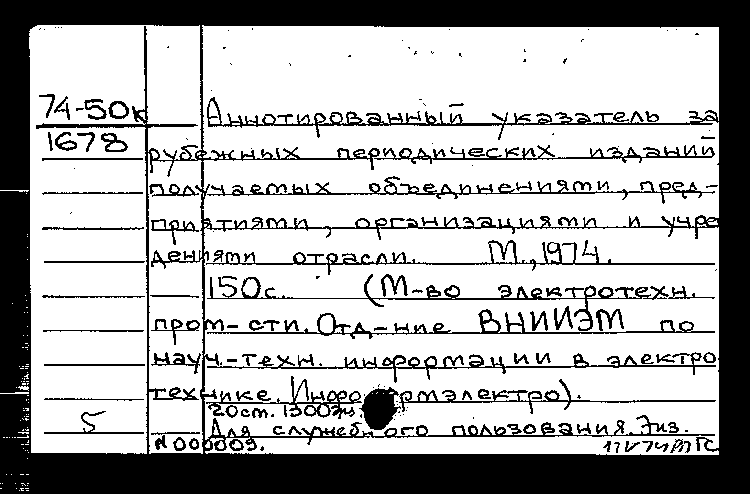 74-50к Аннотированный указатель за
1678 рубежных периодических изданий
получаемых объединениями, пред-
приятиями, организациями и учре
дениями отрасли. М., 1974.
150с. (М-во электротехн.
пром-сти. Отд-ние ВНИИЭМ по
науч.-техн. информации в электро
технике. Информэлектро).
20ст. 1300экз.
5 Для служебного пользования. Экз.
N000009.